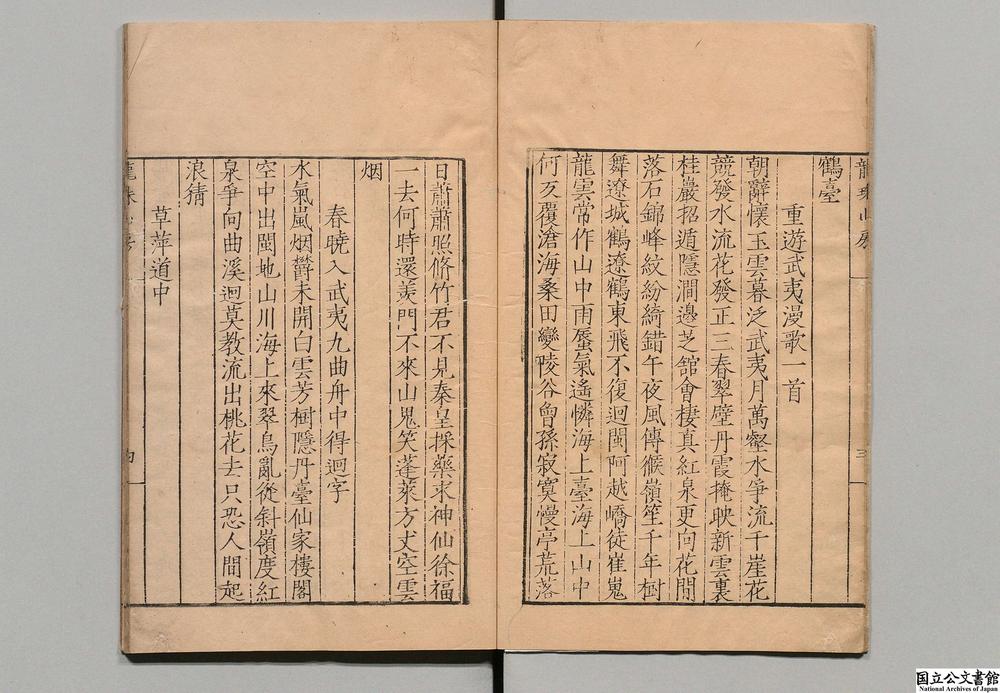 龍珠山房
三
鶴臺
重遊武夷漫歌一首
朝辭懷玉雲暮泛武夷月萬壑水爭流千崖花
競發水流花發正三春翠壁丹霞掩映新雲裏
桂巖招遁隱澗邊芝館會棲真紅泉更向花間
落石錦峰紋紛綺錯午夜風傳緱嶺笙千年樹
舞遼城鶴遼鶴東飛不復迴閩阿越嶠徒崔嵬
龍雲常作山中雨蜃氣遙憐海上臺海上山中
何歹覆滄海桑田變陵谷曾孫寂寞慢亭荒落
日蕭蕭照脩竹君不見秦皇採藥求神仙徐福
一去何時還羨門不來山鬼笑蓬萊方丈空雲
烟
春曉入武夷九曲舟中得迴字
水氣嵐烟欝未開白雲芳樹隱丹臺仙家樓閣
空中出閩地山川海上來翠鳥亂從斜嶺度紅
泉爭向曲溪迴莫教流出桃花去只恐人間起
浪猜
草萍道中
龍珠山房
四
国立公文書館
National Archives of Japan